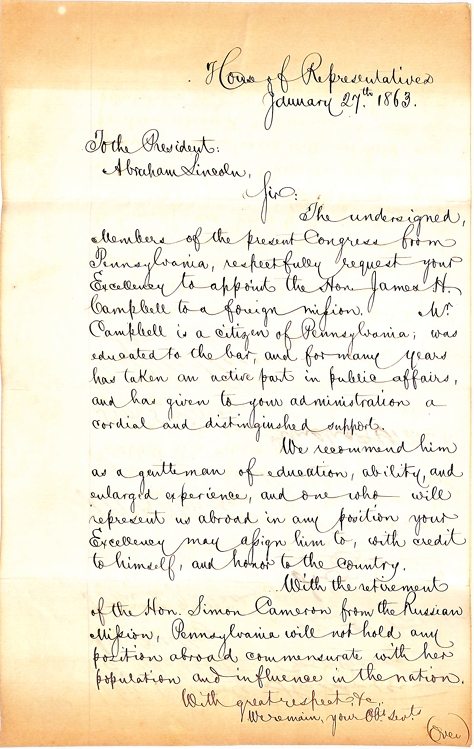 House of Representatives
January 27th 1863.
To the President:
Abraham Lincoln,
Sir:
The undersigned,
Members of the present Congress from
Pennsylvania, respectfully request your
Excellency to appoint the Hon. James H.
Campbell to a foreign mission. Mr
Campbell is a citizen of Pennsylvania; was
educated to the bar, and for many years
has taken an active part in public affairs,
and has given to your administration a
cordial and distinguished support.
We recommend him
as a gentleman of education, ability, and
enlarged experience, and one who will
represent us abroad in any position your
Excellency may assign him to, with credit
to himself, and honor to the country.
With the retirement
of the Hon. Simon Cameron from the Russian
Mission, Pennsylvania will not hold any
position abroad commensurate with her
population and influence in the nation.
With great respect &c,
We remain, your Obt Sevts
(Over)